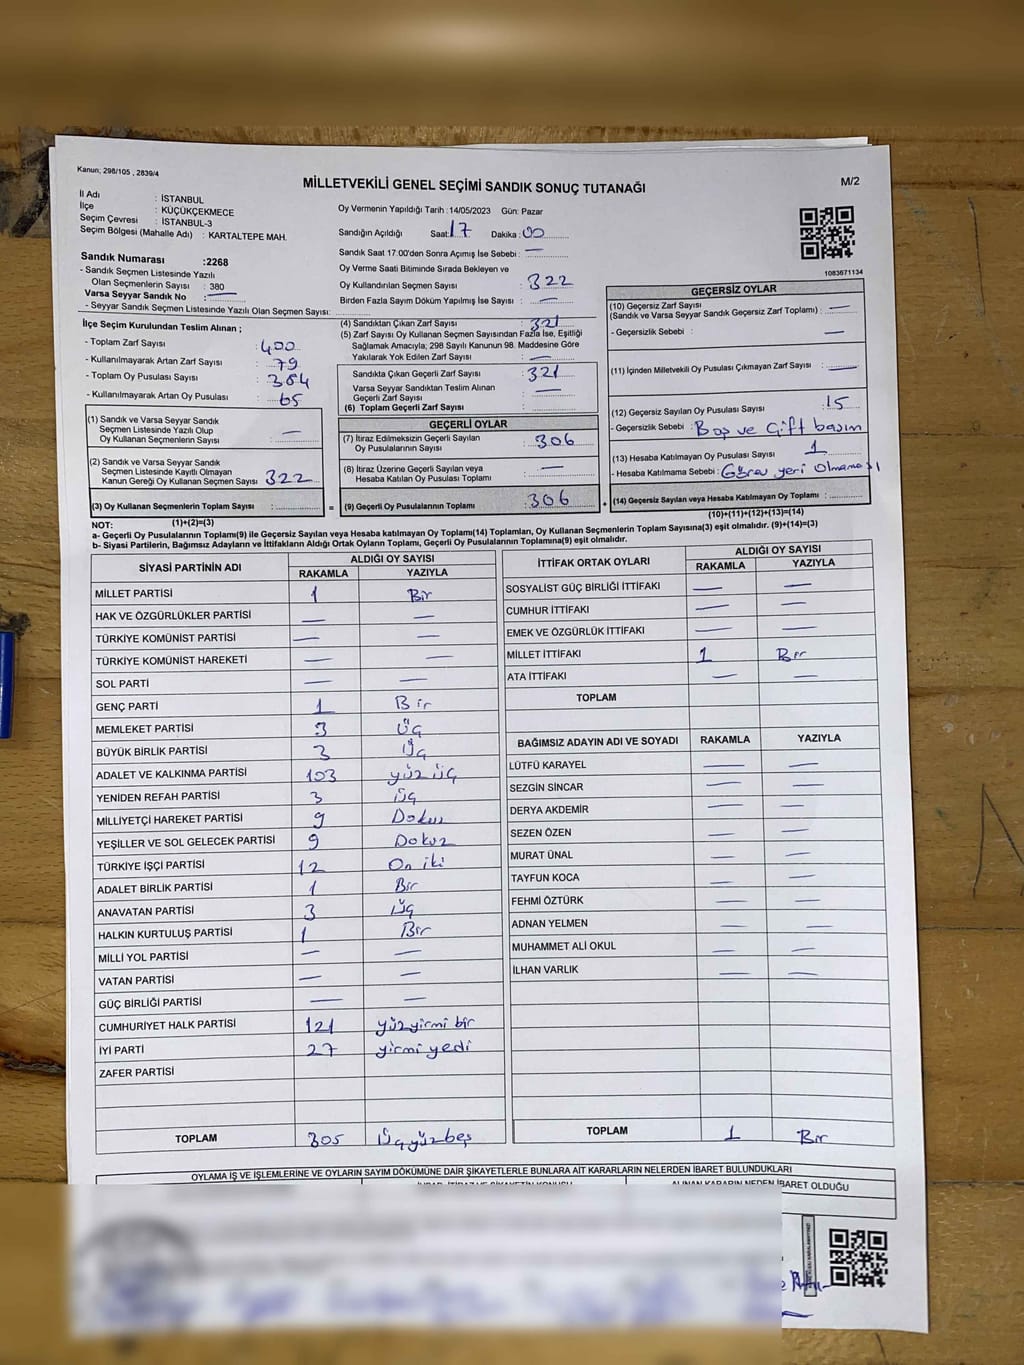 Kanun; 298/105 , 2839/4
MİLLETVEKİLİ GENEL SEÇİMİ SANDIK SONUÇ TUTANAĞI
M/2
İl Adı : İSTANBUL
İlçe : KÜÇÜKÇEKMECE
Seçim Çevresi : İSTANBUL-3
Seçim Bölgesi (Mahalle Adı) : KARTALTEPE MAH.
Sandık Numarası :2268
- Sandık Seçmen Listesinde Yazılı
Olan Seçmenlerin Sayısı : 380
Varsa Seyyar Sandık No : —
- Seyyar Sandık Seçmen Listesinde Yazılı Olan Seçmen Sayısı:
Oy Vermenin Yapıldığı Tarih :14/05/2023 Gün: Pazar
Sandığın Açıldığı Saat: 17 Dakika: 00
Sandık Saat 17.00'den Sonra Açımış İse Sebebi : —
Oy Verme Saati Bitiminde Sırada Bekleyen ve
Oy Kullandırılan Seçmen Sayısı : 322
Birden Fazla Sayım Döküm Yapılmış İse Sayısı : —
1083671134
İlçe Seçim Kurulundan Teslim Alınan ;
- Toplam Zarf Sayısı : 400
- Kullanılmayarak Artan Zarf Sayısı : 79
- Toplam Oy Pusulası Sayısı : 384
- Kullanılmayarak Artan Oy Pusulası : 65
(1) Sandık ve Varsa Seyyar Sandık
Seçmen Listesinde Yazılı Olup
Oy Kullanan Seçmenlerin Sayısı : —
(2) Sandık ve Varsa Seyyar Sandık
Seçmen Listesinde Kayıtlı Olmayan
Kanun Gereği Oy Kullanan Seçmen Sayısı : 322
(3) Oy Kullanan Seçmenlerin Toplam Sayısı :
(4) Sandıktan Çıkan Zarf Sayısı : 321
(5) Zarf Sayısı Oy Kullanan Seçmen Sayısından Fazla İse, Eşitliği
Sağlamak Amacıyla; 298 Sayılı Kanunun 98. Maddesine Göre
Yakılarak Yok Edilen Zarf Sayısı : —
Sandıkta Çıkan Geçerli Zarf Sayısı : 321
Varsa Seyyar Sandıktan Teslim Alınan
Geçerli Zarf Sayısı : —
(6) Toplam Geçerli Zarf Sayısı :
GEÇERLİ OYLAR
(7) İtiraz Edilmeksizin Geçerli Sayılan
Oy Pusulalarının Sayısı : 306
(8) İtiraz Üzerine Geçerli Sayılan veya
Hesaba Katılan Oy Pusulası Toplamı : —
= (9) Geçerli Oy Pusulalarının Toplamı : 306 +
GEÇERSİZ OYLAR
(10) Geçersiz Zarf Sayısı
(Sandık ve Varsa Seyyar Sandık Geçersiz Zarf Toplamı) : —
- Geçersizlik Sebebi : —
(11) İçinden Milletvekili Oy Pusulası Çıkmayan Zarf Sayısı : —
(12) Geçersiz Sayılan Oy Pusulası Sayısı : 15
- Geçersizlik Sebebi : Boş ve Çift basım
(13) Hesaba Katılmayan Oy Pusulası Sayısı : 1
- Hesaba Katılmama Sebebi : Görev yeri Olmaması
(14) Geçersiz Sayılan veya Hesaba Katılmayan Oy Toplamı :
(1)+(2)=(3)
(10)+(11)+(12)+(13)=(14)
NOT:
a- Geçerli Oy Pusulalarının Toplamı(9) ile Geçersiz Sayılan veya Hesaba katılmayan Oy Toplamı(14) Toplamları, Oy Kullanan Seçmenlerin Toplam Sayısına(3) eşit olmalıdır. (9)+(14)=(3)
b- Siyasi Partilerin, Bağımsız Adayların ve İttifakların Aldığı Ortak Oyların Toplamı, Geçerli Oy Pusulalarının Toplamına(9) eşit olmalıdır.
SİYASİ PARTİNİN ADI ALDIĞI OY SAYISI
RAKAMLA YAZIYLA
MİLLET PARTİSİ 1 Bir
HAK VE ÖZGÜRLÜKLER PARTİSİ — —
TÜRKİYE KOMÜNİST PARTİSİ — —
TÜRKİYE KOMÜNİST HAREKETİ — —
SOL PARTİ — —
GENÇ PARTİ 1 Bir
MEMLEKET PARTİSİ 3 Üç
BÜYÜK BİRLİK PARTİSİ 3 Üç
ADALET VE KALKINMA PARTİSİ 103 yüz üç
YENİDEN REFAH PARTİSİ 3 üç
MİLLİYETÇİ HAREKET PARTİSİ 9 Dokuz
YEŞİLLER VE SOL GELECEK PARTİSİ 9 Dokuz
TÜRKİYE İŞÇİ PARTİSİ 12 On iki
ADALET BİRLİK PARTİSİ 1 Bir
ANAVATAN PARTİSİ 3 Üç
HALKIN KURTULUŞ PARTİSİ 1 Bir
MİLLİ YOL PARTİSİ — —
VATAN PARTİSİ — —
GÜÇ BİRLİĞİ PARTİSİ — —
CUMHURİYET HALK PARTİSİ 121 yüzyirmi bir
İYİ PARTİ 27 yirmi yedi
ZAFER PARTİSİ
TOPLAM 305 Üçyüzbeş
İTTİFAK ORTAK OYLARI ALDIĞI OY SAYISI
RAKAMLA YAZIYLA
SOSYALİST GÜÇ BİRLİĞİ İTTİFAKI — —
CUMHUR İTTİFAKI — —
EMEK VE ÖZGÜRLÜK İTTİFAKI — —
MİLLET İTTİFAKI 1 Bir
ATA İTTİFAKI — —
TOPLAM
BAĞIMSIZ ADAYIN ADI VE SOYADI RAKAMLA YAZIYLA
LÜTFÜ KARAYEL — —
SEZGİN SİNCAR — —
DERYA AKDEMİR — —
SEZEN ÖZEN — —
MURAT ÜNAL — —
TAYFUN KOCA — —
FEHMİ ÖZTÜRK — —
ADNAN YELMEN — —
MUHAMMET ALİ OKUL — —
İLHAN VARLIK — —
TOPLAM 1 Bir
OYLAMA İŞ VE İŞLEMLERİNE VE OYLARIN SAYIM DÖKÜMÜNE DAİR ŞİKAYETLERLE BUNLARA AİT KARARLARIN NELERDEN İBARET BULUNDUKLARI
ALINAN KARARIN NEDEN İBARET OLDUĞU